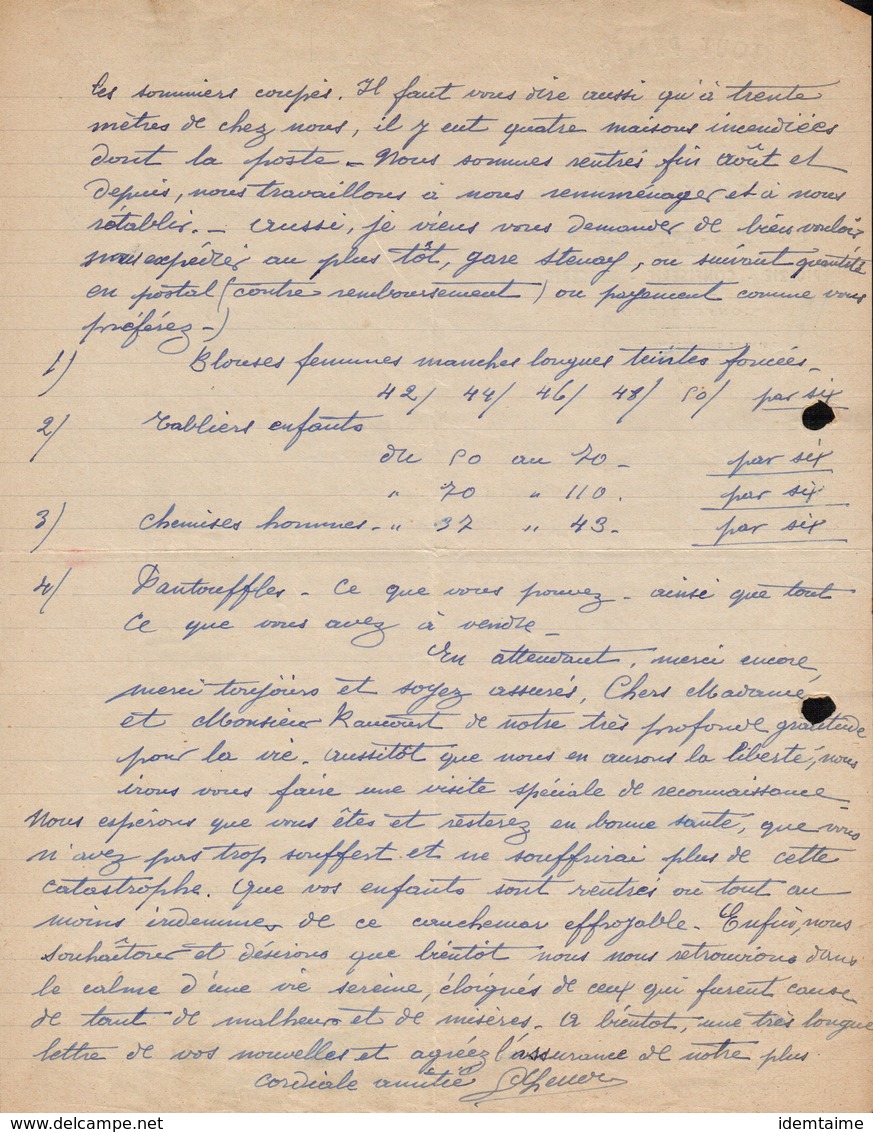 les sommiers coupés. Il faut vous dire aussi qu'à trente
mètres de chez nous, il y eut quatre maisons incendiées
dont la poste - Nous sommes rentrés fin Août et
depuis, nous travaillons à nous remménager et à nous
rétablir. - Aussi, je viens vous demander de bien vouloir
nous expédier au plus tôt, gare Stenay, ou suivant quantité
en postal (contre remboursement) ou payement comme vous
préférez -)
1) Blouses femmes manches longues teintes foncées -
42/ 44/ 46/ 48/ 50/ par six
2/ Tabliers enfants
du 50 au 70 - par six
" 70 " 110. par six
3/ Chemises hommes - " 37 " 43 - par six
4/ Pantouffles - Ce que vous pouvez - ainsi que tout
ce que vous avez à vendre -
En attendant, merci encore,
merci toujours et soyez assurés, Chers Madame
et Monsieur Raucourt de notre très profonde gratitude
pour la vie. Aussitôt que nous en aurons la liberté, nous
irons vous faire une visite spéciale de reconnaissance
Nous espérons que vous êtes et resterez en bonne santé, que vous
n'avez pas trop souffert et ne souffrirai plus de cette
catastrophe. Que vos enfants sont rentrés ou tout au
moins indemmes de ce cauchemar effroyable. Enfin, nous
souhaitons et désirons que bientôt nous nous retrouvions dans
le calme d'une vie sereine, éloignés de ceux qui furent cause
de tant de malheurs et de misères. A bientôt, une très longue
lettre de vos nouvelles et agréez l'assurance de notre plus
cordiale amitié
delcampe.net
idemtaime